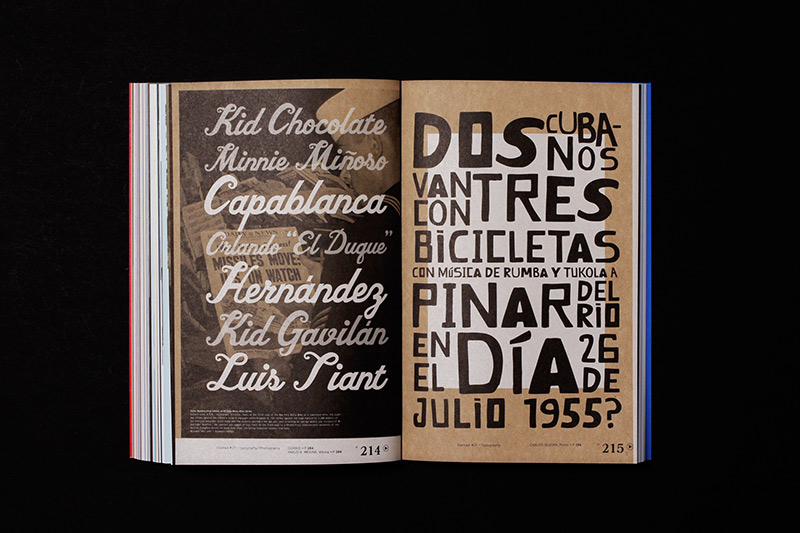 Kid Chocolate
Minnie Miñoso
Capablanca
Orlando "El Duque"
Hernández
Kid Gavilán
Luis Tiant
DAILY NEWS
MISSILES MOVE:
ON WATCH
214
DOS CUBA-
NOS
VAN TRES
CON
BiCiCLETAS
CON MÚSICA DE RUMBA Y TUKOLA A
PINAR DEL
RÍO
EN DÍA 26
EL DE
JULIO 1955?
215